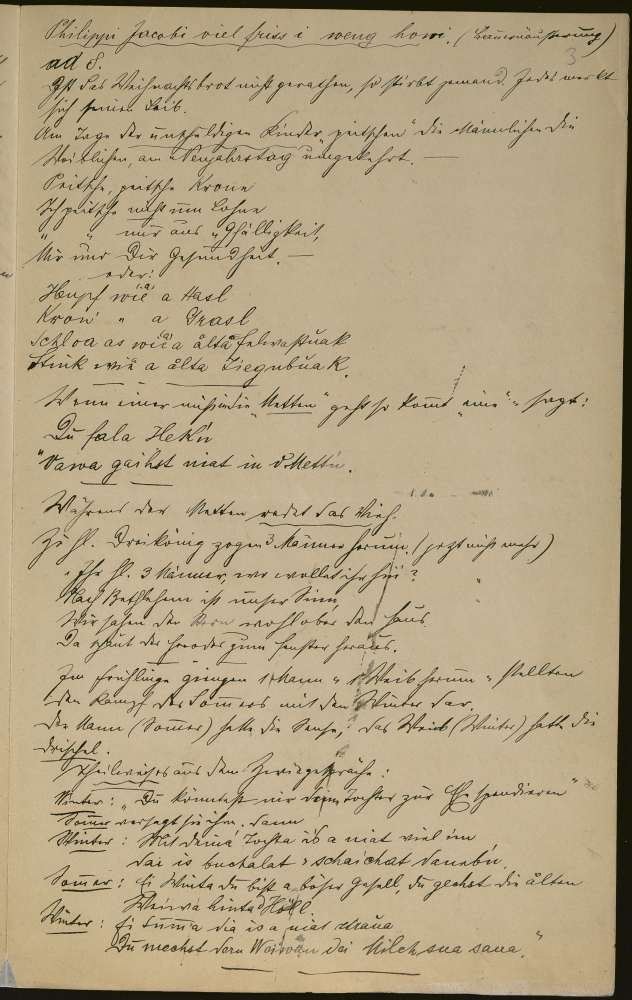 Philippi Jacobi viel friss i weng howi. (Bauernäußerung)
3
ad 8.
Ist das Weihnachtsbrot nicht gerathen, so stirbt jemand. Jedes merkt
sich seinen Laib.
Am Tage der unschuldigen Kinder „peitschen" die Männlichen die
Weiblichen, am Neujahrstag umgekehrt. —
Peitsche, peitsche Krone
Ich peitsche nicht um Lohne
" " nur aus „Gfälligkeit,
Mir und Dir Gesundheit. —
oder:
Hupf wiea a Hasl
Kron " a Grasl
Schloa as wiea a ålta
Stink wiä a ålta Ziegnbuak.
Wenn einer nicht in die „Metten" geht so kommt „eine" u sagt:
Du fala Hek'n
Vawa gaihst niat in d'Mett'n.
Während der Metten redet das Vieh.
Zu hl. Dreikönig zogen 3 Männer herum. (jetzt nicht mehr)
„Ihr hl. 3 Männer, wo wollet ihr hin?
Nach Bethlehem ist unser Sinn
Wir sahen den Stern wohl ober dem Haus.
Da schaut der Herodes zum Fenster heraus.
Im Frühlinge giengen 1 Mann u 1 Weib herum u stellten
den Kampf des Sommers mit dem Winter dar.
Der Mann (Sommer) hatte die Sense, das Weib (Winter) hatte die
Drischel.
Theilweises aus dem Zwiegespräche:
Winter: „Du könntest mir deine Tochter zur Eh spendieren"
Sommer versagt sie ihm. Dann
Winter: Mit deina Tochta is a niat viel im
Dai is buchalat u schaichat danebn.
Sommer: Ei Winta du bist a böser Gesell, du gechst die ålten
Weiwa hinta d'Höll
Winter: Ei Summa dia is a niat
Du mechst dern Weiwan dei Milch sua saua."